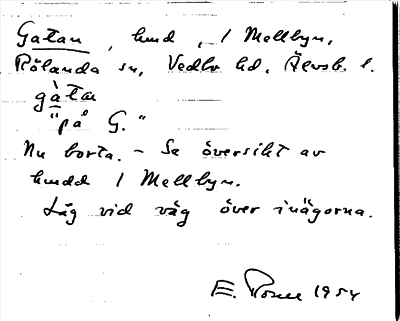 Gatan, hmd, i Mellbyn,
Rölanda sn, Vedbo hd. Älvsb. l.
gàta
"på G."
Nu borta. - Se översikt av
hmdd i Mellbyn.
Låg vid väg över inägorna.
E. 1954